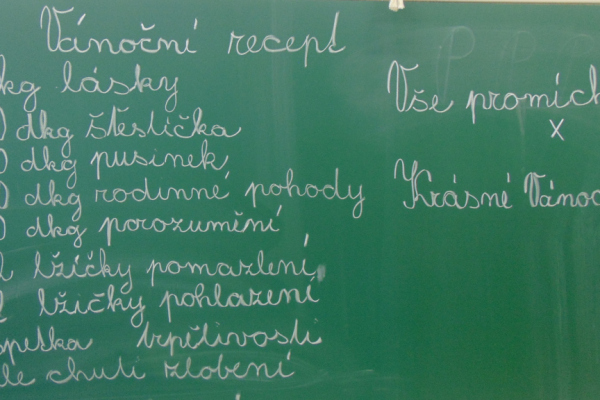 Vánoční recept
kg lásky
dkg štěstíčka
dkg pusinek
dkg rodinné pohody
dkg porozumění
lžičky pomazlení
lžičky pohlazení
špetka trpělivosti
dle chuti zlobení
Vše promích
x
Krásné Vánoc